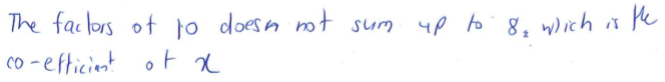 The factors of 10 doesn not sum up to 8, which is the
co-efficient of x